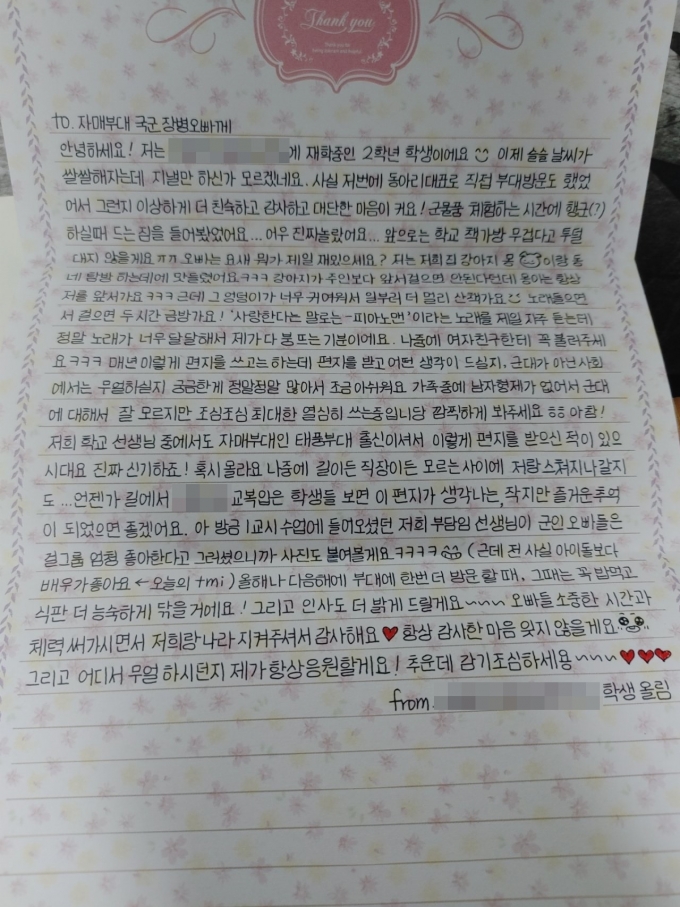 Thank you
to. 자매부대 국군 장병오빠께
안녕하세요! 저는 에 재학중인 2학년 학생이에요 이제 슬슬 날씨가
쌀쌀해지는데 지낼만 하신가 모르겠네요. 사실 저번에 동아리대표로 직접 부대방문도 했었
어서 그런지 이상하게 더 친숙하고 감사하고 대단한 마음이 커요! 군물품 체험하는 시간에 행군(?)
하실때 드는 짐을 들어봤었어요... 어우 진짜놀랐어요... 앞으로는 학교 책가방 무겁다고 투덜
대지 않을게요ㅠㅠ 오빠는 요새 뭐가 제일 재밌으세요? 저는 저희집 강아지 몽 이랑 동
네 탐방 하는데에 맛들렸어요ㅋㅋㅋ 강아지가 주인보다 앞서걸으면 안된다던데 몽이는 항상
저를 앞서가요ㅋㅋㅋ 근데 그 엉덩이가 너무 귀여워서 일부러 더 멀리 산책가요 노래들으면
서 걸으면 두시간 금방가요! '사랑한다는 말로는-피아노맨'이라는 노래를 제일 자주 듣는데
정말 노래가 너무 달달해서 제가 다 붕 뜨는 기분이에요. 나중에 여자친구한테 꼭 불러주세
요ㅋㅋㅋ 매년 이렇게 편지를 쓰고는 하는데 편지를 받고 어떤 생각이 드실지, 군대가 아닌 사회
에서는 무얼하실지 궁금한게 정말정말 많아서 조금 아쉬워요 가족중에 남자형제가 없어서 군대
에 대해서 잘 모르지만 조심조심 최대한 열심히 쓰는중입니당 깜찍하게 봐주세요ㅎㅎ 아참!
저희 학교 선생님 중에서도 자매부대인 태풍부대 출신이셔서 이렇게 편지를 받으신 적이 있으
시대요 진짜 신기하죠! 혹시 몰라요 나중에 길이든 직장이든 모르는사이에 저랑스쳐지나갈지
도 ...언젠가 길에서 교복입은 학생들 보면 이 편지가 생각나는, 작지만 즐거운추억
이 되었으면 좋겠어요. 아 방금 1교시 수업에 들어오셨던 저희 부담임 선생님이 군인 오빠들은
걸그룹 엄청 좋아한다고 그러셨으니까 사진도 붙여볼게요ㅋㅋㅋㅋ (근데 전 사실 아이돌보다
배우가 좋아요 ← 오늘의 tmi) 올해나 다음해에 부대에 한번 더 방문 할 때, 그때는 꼭 밥먹고
식판 더 능숙하게 닦을 거에요! 그리고 인사도 더 밝게 드릴게요~~~ 오빠들 소중한 시간과
체력 써가시면서 저희랑 나라 지켜주셔서 감사해요♥ 항상 감사한 마음 잊지 않을게요
그리고 어디서 무얼 하시던지 제가 항상응원할게요! 추운데 감기조심하세용~~~♥♥♥
from. 학생 올림